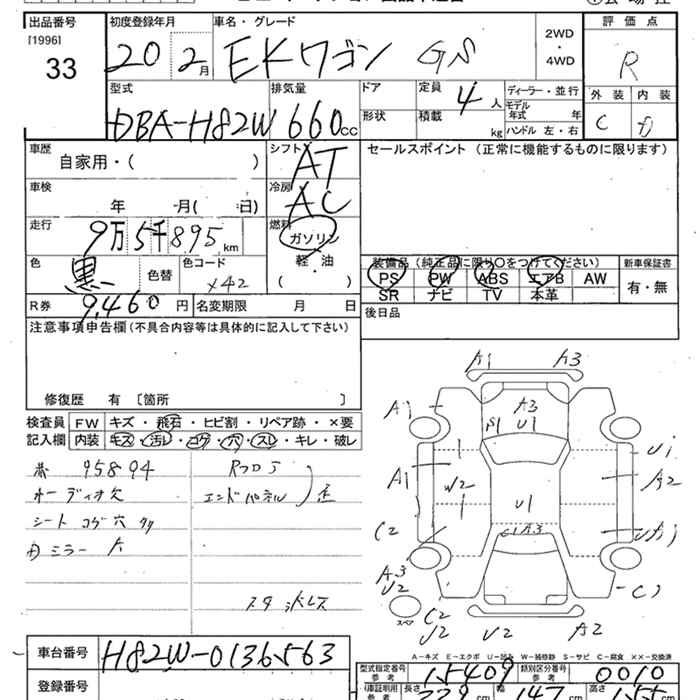 出品番号 初度登録年月 車名・グレード 評価点
[1996] 33 20 2月 EKワゴン GS 2WD・4WD R
型式 排気量 ドア 定員 4人 ディーラー・並行 外装 内装
DBA-H82W 660cc 形状 積載 kg モデル年式 年 C D
ハンドル 左・右
車歴 シフト AT セールスポイント (正常に機能するものに限ります)
自家用・( )
車検 冷房 AC
年 月( 日)
走行 燃料
9万5千895km ガソリン
色 黒 色替 色コード X42 軽・油 装備品 (純正品に限り○をつけてください) 新車保証書
( ) PS PW ABS エアB AW 有・無
SR ナビ TV 本革
R券 9,460円 名変期限 月 日 後日品
注意事項申告欄 (不具合内容等は具体的に記入して下さい)
修復歴 有 〔箇所 〕
検査員 FW キズ・飛石・ヒビ割・リペア跡・×要
記入欄 内装 キズ・汚レ・コゲ・穴・スレ・キレ・破レ
95894
オーディオ欠 エンドパネル
シート コゲ穴
ミラー
スタッドレス
A1 A3
A1 A3
S1 U1
U1
A1 W2 A2
U1
C2 C1 A3
A3
U2 C1
スペア C2
U2 U2 A2
車台番号 H82W-0136563
A-キズ E-エクボ U-凹ミ W-補修跡 S-サビ C-腐食 ××-交換済
登録番号 型式指定番号 参考 15409 類別区分番号 参考 0010
長さ 幅 147 高さ